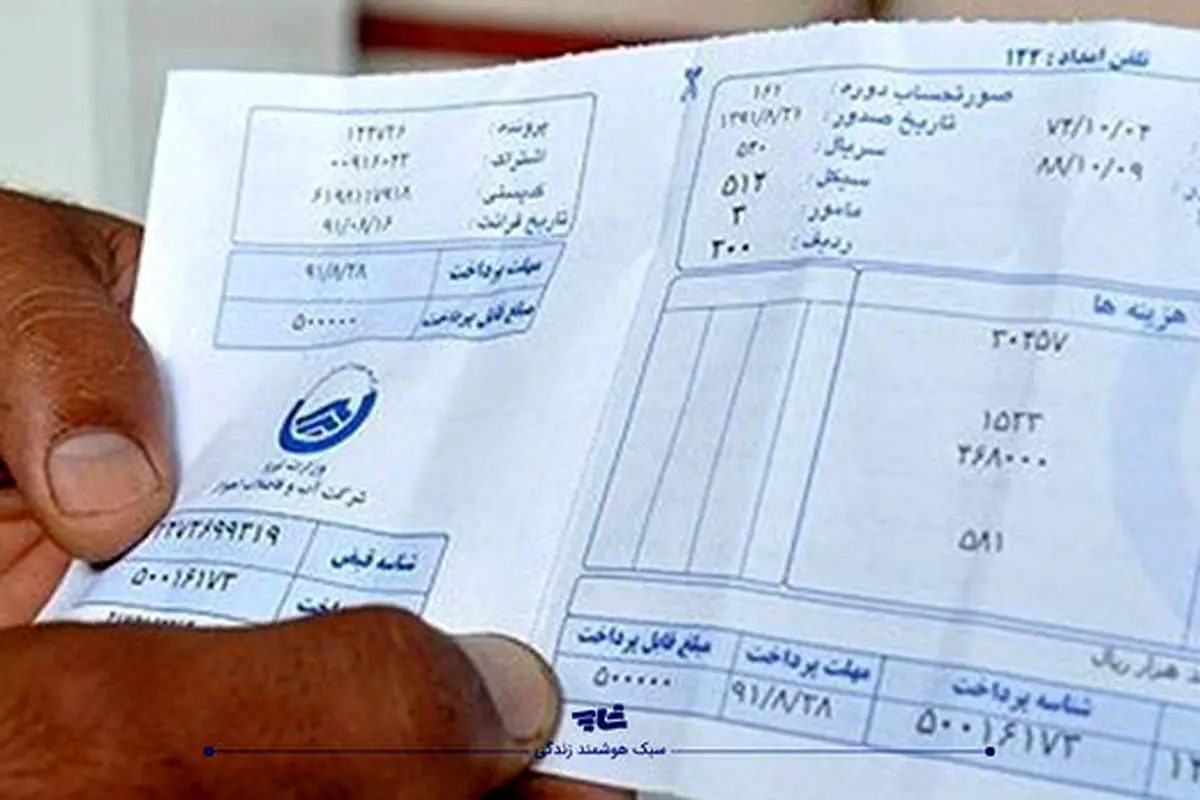 تلفن امداد : ۱۲۲
صورتحساب دوره: ۱۶۱
تاریخ صدور: ۱۳۹۱/۸/۲۱
سریال: ۵۲۰
سیکل: ۵۱۲
مامور: ۳
ردیف: ۳۰۰
۷۴/۱۰/۰۴
۸۸/۱۰/۰۹
هزینه ها
۳۰۴۵۷
۱۵۲۳
۴۶۸۰۰۰
۵۸۱
هزار ریال
شناسه پرداخت مهلت پرداخت مبلغ قابل پرداخت
۵۰۰۱۶۱۷۳ ۹۱/۸/۲۸ ۵۰۰۰۰۰
پرونده: ۱۲۳۷۲۶
اشتراک: ۰۰۹۱۶۰۲۳
کدپستی: ۶۱۹۸۱۱۷۹۱۸
تاریخ قرائت: ۹۱/۰۸/۱۶
مهلت پرداخت ۹۱/۸/۲۸
مبلغ قابل پرداخت ۵۰۰۰۰۰
وزارت نیرو
شرکت آب و فاضلاب اهواز
شناسه قبض
۵۰۰۱۶۱۷۳
شاپ
سبک هوشمند زندگی